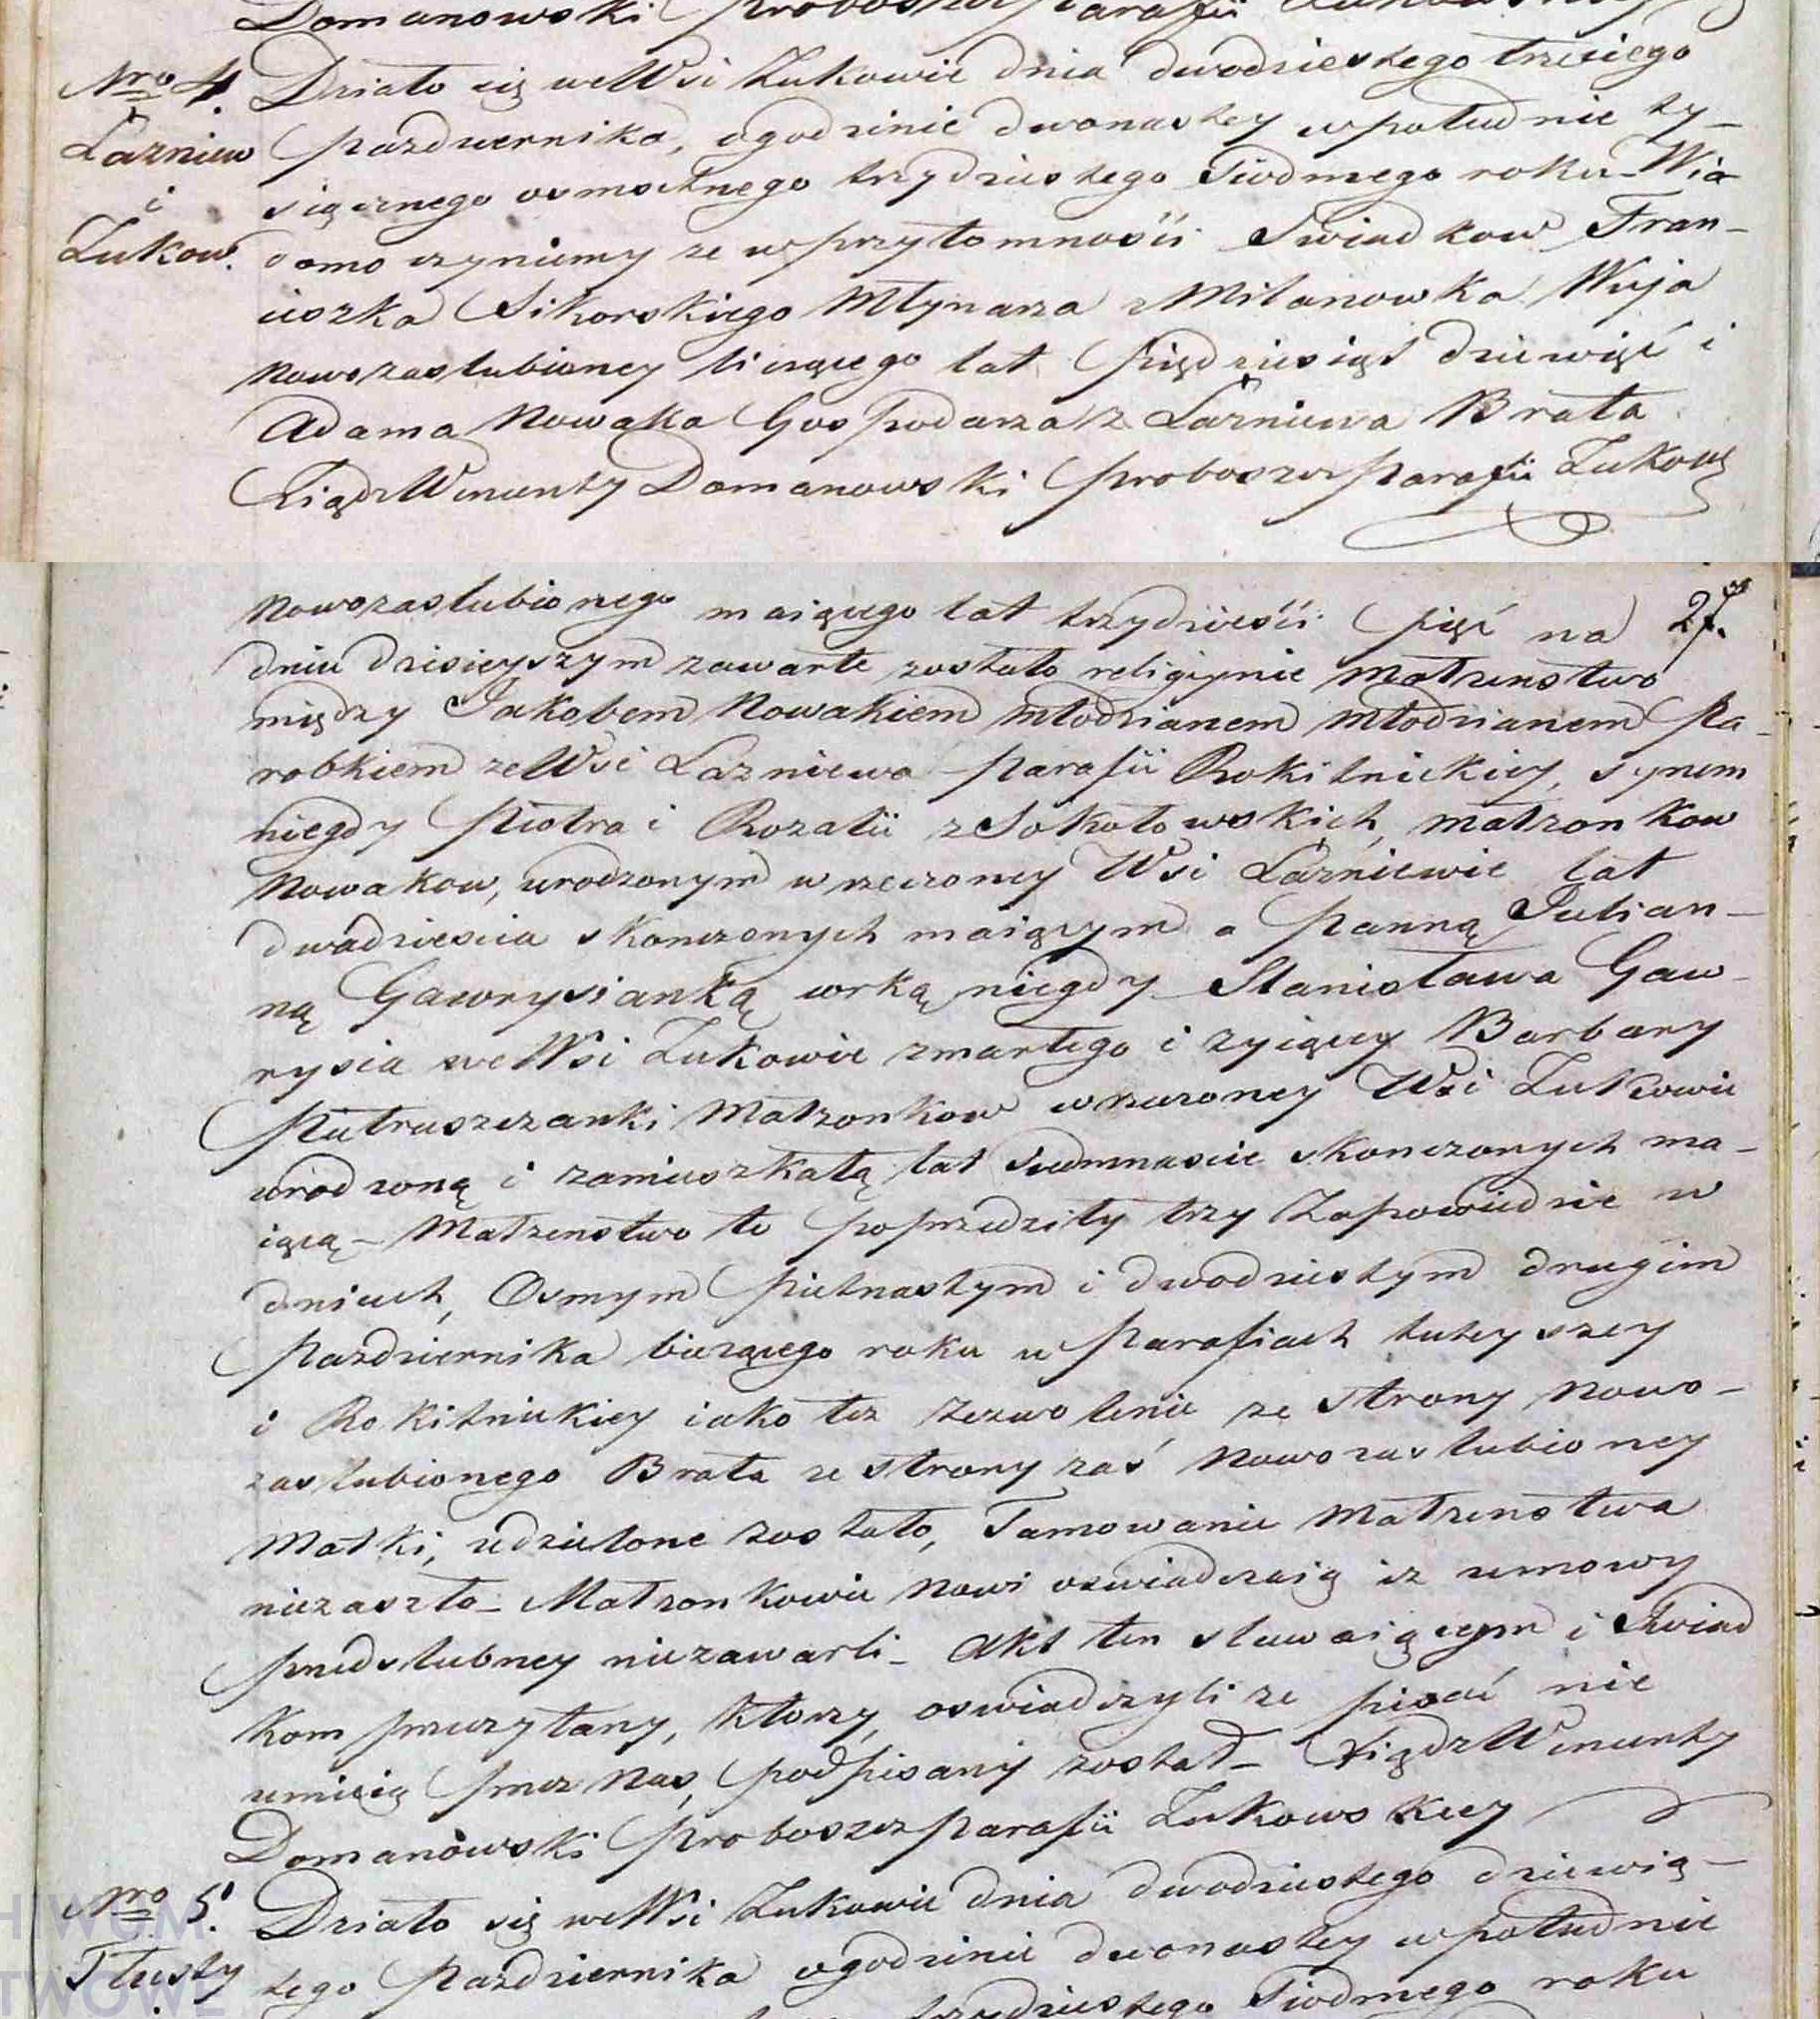 Domanowski Proboszcz Parafii
Nro 4. Działo się we Wsi Żukowie dnia dwudziestego trzeciego
Łaźniew Pazdziernika, o godzinie dwonastey w południe ty-
i siącznego osmsetnego trzydziestego Siodmego roku Wia-
Żukow. domo czyniemy ze w przytomności Swiadkow Fran-
ciszka Sikorskiego Młynarza z Milanowka Wuja
Nowozaslubioney liczącego lat pięćdziesiąt dziewięć i
Adama Nowaka Gospodarza z Łaźniewa Brata
Xiądz Wincenty Domanowski Proboszcz Parafii Żukows
Nowozaslubionego maiącego lat trzydzieści pięć na 27.
dniu dzisieyszym zawarte zostało religiynie Małzenstwo
między Jakobem Nowakiem młodzianem młodzianem Pa-
robkiem ze Wsi Łazniewa Parafii Rokitnickiey, synem
niegdy Piotra i Rozalii z Sokołowskich, małzonkow
Nowakow, urodzonym w rzeczoney Wsi Łaźniewie lat
dwadziescia skonczonych maiącym a Panną Julian-
ną Gawrysianką corką niegdy Stanisława Gaw-
rysia we Wsi Żukowie zmarłego i zyiącey Barbary
Pietruszczanki Małzonkow w rzeczoney Wsi Żukowie
urodzoną i zamieszkałą lat siedmnascie skonczonych ma-
iącą - Małzenstwo to poprzedziły trzy Zapowiedzie w
dniach, Osmym Pietnastym i dwudziestym drugim
Pazdziernika biezącego roku w Parafiach tuteyszey
i Rokitnickiey iako tez Zezwolenie ze strony Nowo-
zaslubionego Brata ze strony zaś Nowozaslubioney
Matki, udzielone zostało, Tamowanie Małzenstwa
niezaszło - Małzonkowie Nowi oswiadczaią iz umowy
przedslubney niezawarli - Akt ten stawaiącym i Swiad
kom przeczytany, ktorzy oswiadczyli ze pisać nie
umieią przez Nas, podpisany został - Xiądz Wincenty
Domanowski Proboszcz Parafii Żukowskiey
Nro 5. Działo się we Wsi Żukowie dnia dwudziestego dziewią-
Tłusty tego Pazdziernika o godzinie dwonastey w południe
trzydziestego Siodmego roku